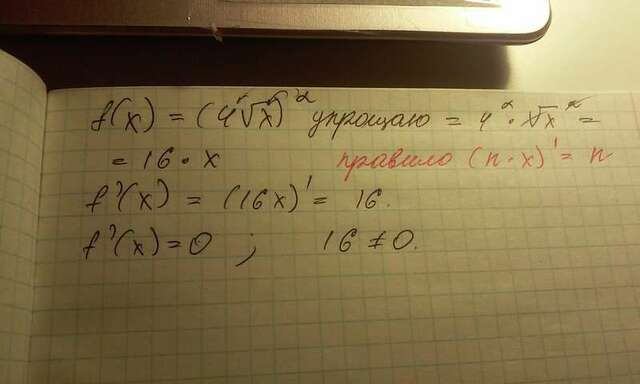 f(x) = (4√x)² упрощаю = 4² · √x² =
= 16 · x правило (n · x)' = n
f'(x) = (16x)' = 16.
f'(x) = 0 ; 16 ≠ 0.